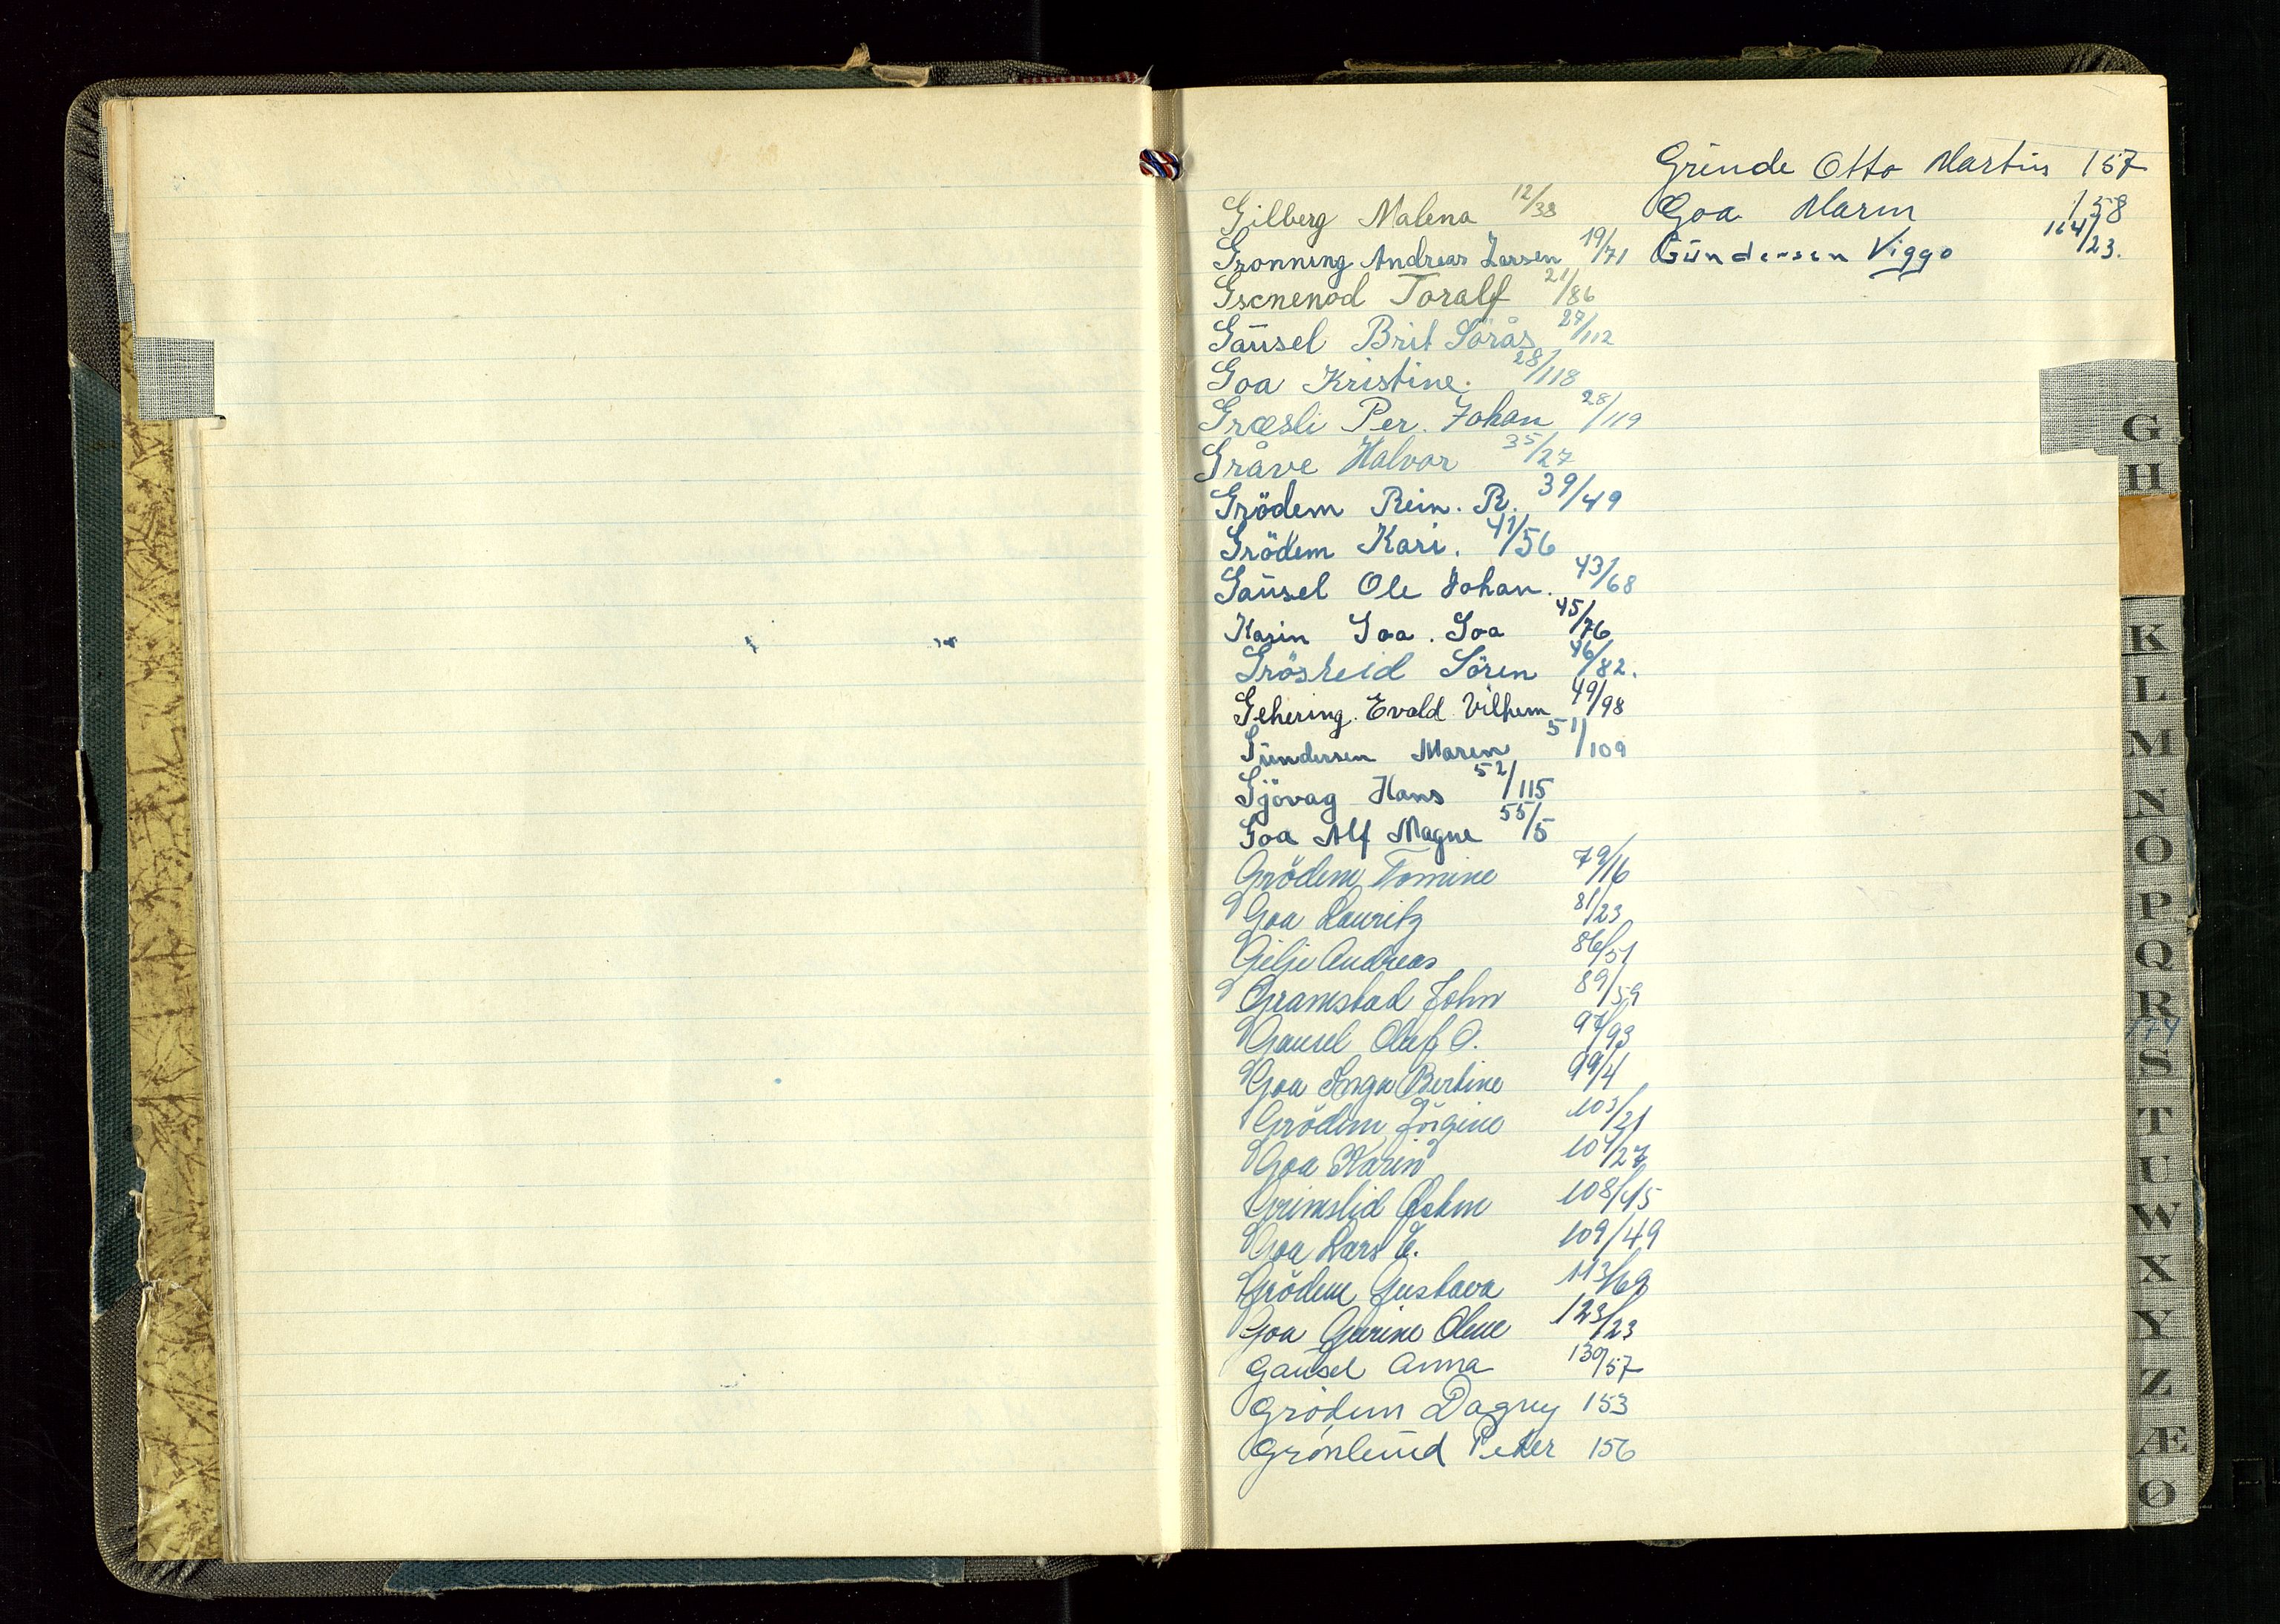 Gilberg Malena 12/38
Gronning Andreas Larsen 19/71
Gscnenod Toralf 21/86
Gaüsel Brit Sörås 27/112
Goa Kristine. 28/118
Græsli Per. Johan 28/119
Gråve Halvor 35/27
Grödem Rein. R. 39/49
Grödem Kari. 41/56
Gaüsel Ole Johan. 43/68
Karin Goa. Goa 45/76
Grösheid Sören 46/82.
Gehering. Evald Vilhem 49/98
Gündersen Maren 51/109
Gjövag Hans 52/115
Goa Alf Magne 55/5
Grödem Tomine 79/16
Goa Lauritz 81/23
Gilje Andreas 86/51
Gramstad John 89/59
Gausel Olaf O. 97/93
Goa Inga Bertine 99/4
Grödem Jörgine 103/21
Goa Karin 104/27
Grimslid 108/45
Goa Lars E. 109/49
Grödem Gustava 113/69
Goa Gurine Olene 123/23
Gaüsel Anna 130/57
Grödem Dagny 153
Grönlünd Peter 156
Grinde Otto Martin 157
Goa Marin 158
Gündersen Viggo 164/23.
G
H
K
L
M
N
O
P
Q
R
S
T
U
W
X
Y
Z
Æ
Ø